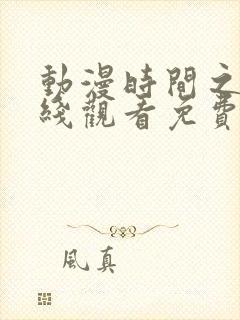 動漫時間之
綫觀看免費
風真